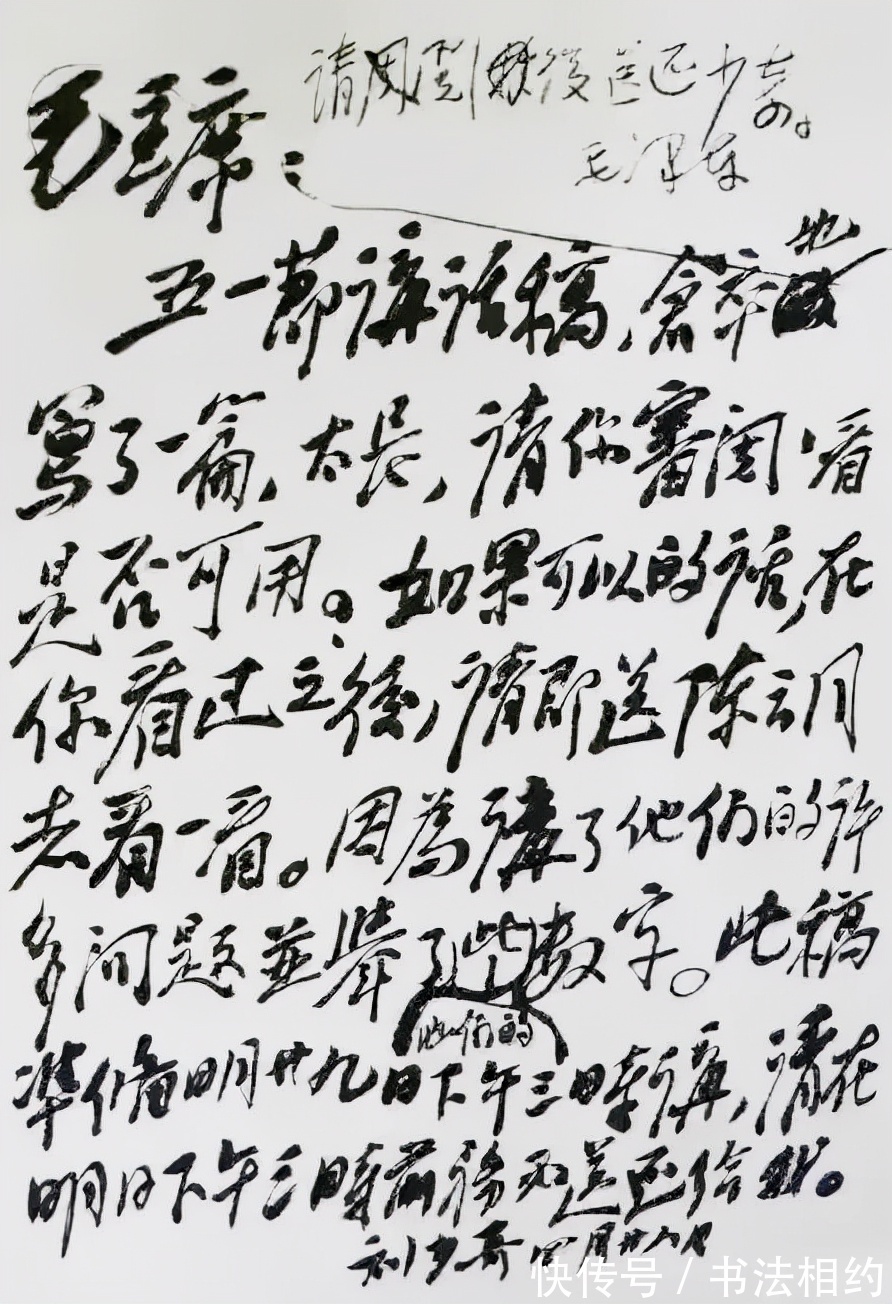 请周阅，最後送还少奇。
毛泽东
毛主席：
五一節講话稿，倉卒地
写了一篇，太長，请你審閲，看
是否可用。如果可以的话，在
你看过之後，请即送陈云同
志看一看。因為講了他们的许
多问题並舉了些数字。此稿
他们的
準備明廿九日下午三時講，请在
明日下午三時前務必送还给我。
刘少奇 四月廿八日
快传号 / 书法相约